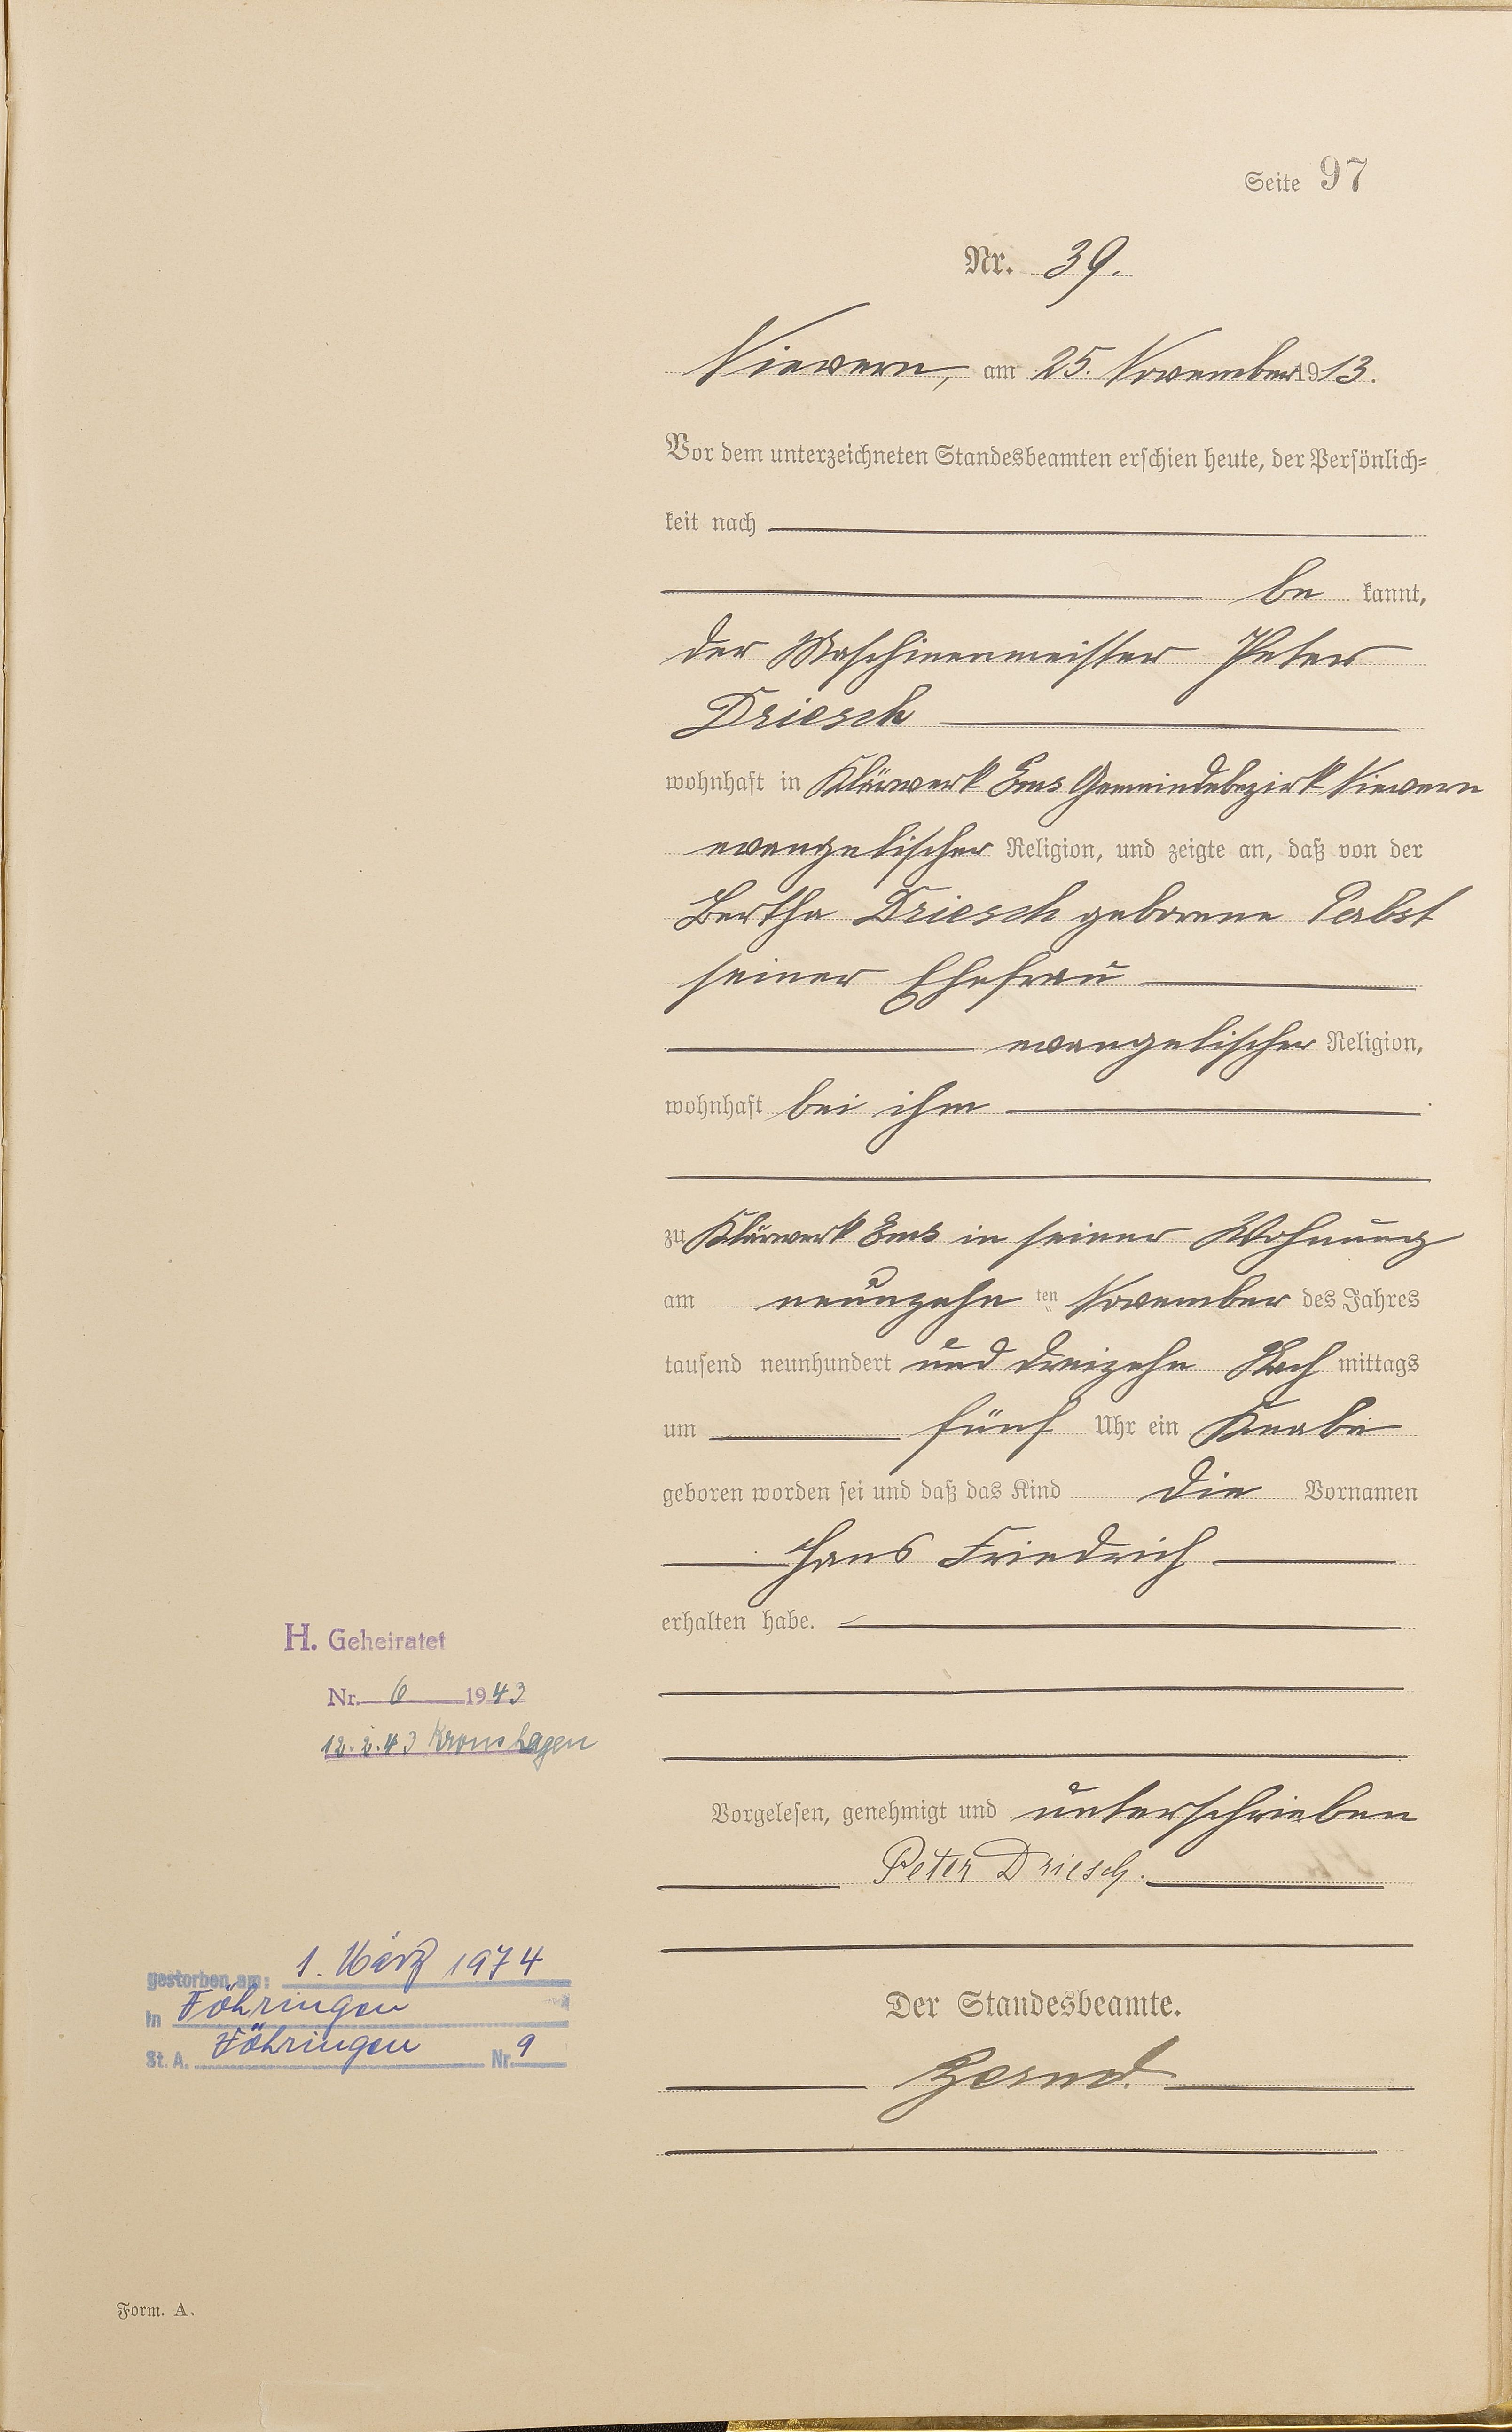 Seite 97
Nr. 39.
Nievern, am 25. November 1913.
Vor dem unterzeichneten Standesbeamten erschien heute, der Persönlich=
keit nach
be kannt,
der Maschinenmeister Peter
Driesch
wohnhaft in Klärwerk Ems Gemeindebezirk Nievern
evangelischer Religion, und zeigte an, daß von der
Bertha Driesch geborene Pabst
seiner Ehefrau
evangelischer Religion,
wohnhaft bei ihm
zu Klärwerk Ems in seiner Wohnung
am neunzehn ten November des Jahres
tausend neunhundert und dreizehn Nach mittags
um fünf Uhr ein Knabe
geboren worden sei und daß das Kind die Vornamen
Hans Friedrich
erhalten habe.
H. Geheiratet
Nr. 6 1943
12.2.43 Kronshagen
Vorgelesen, genehmigt und unterschrieben
Peter Driesch.
gestorben am: 1. März 1974
in Föhringen
St. A. Föhringen Nr. 9
Der Standesbeamte.
Form. A.